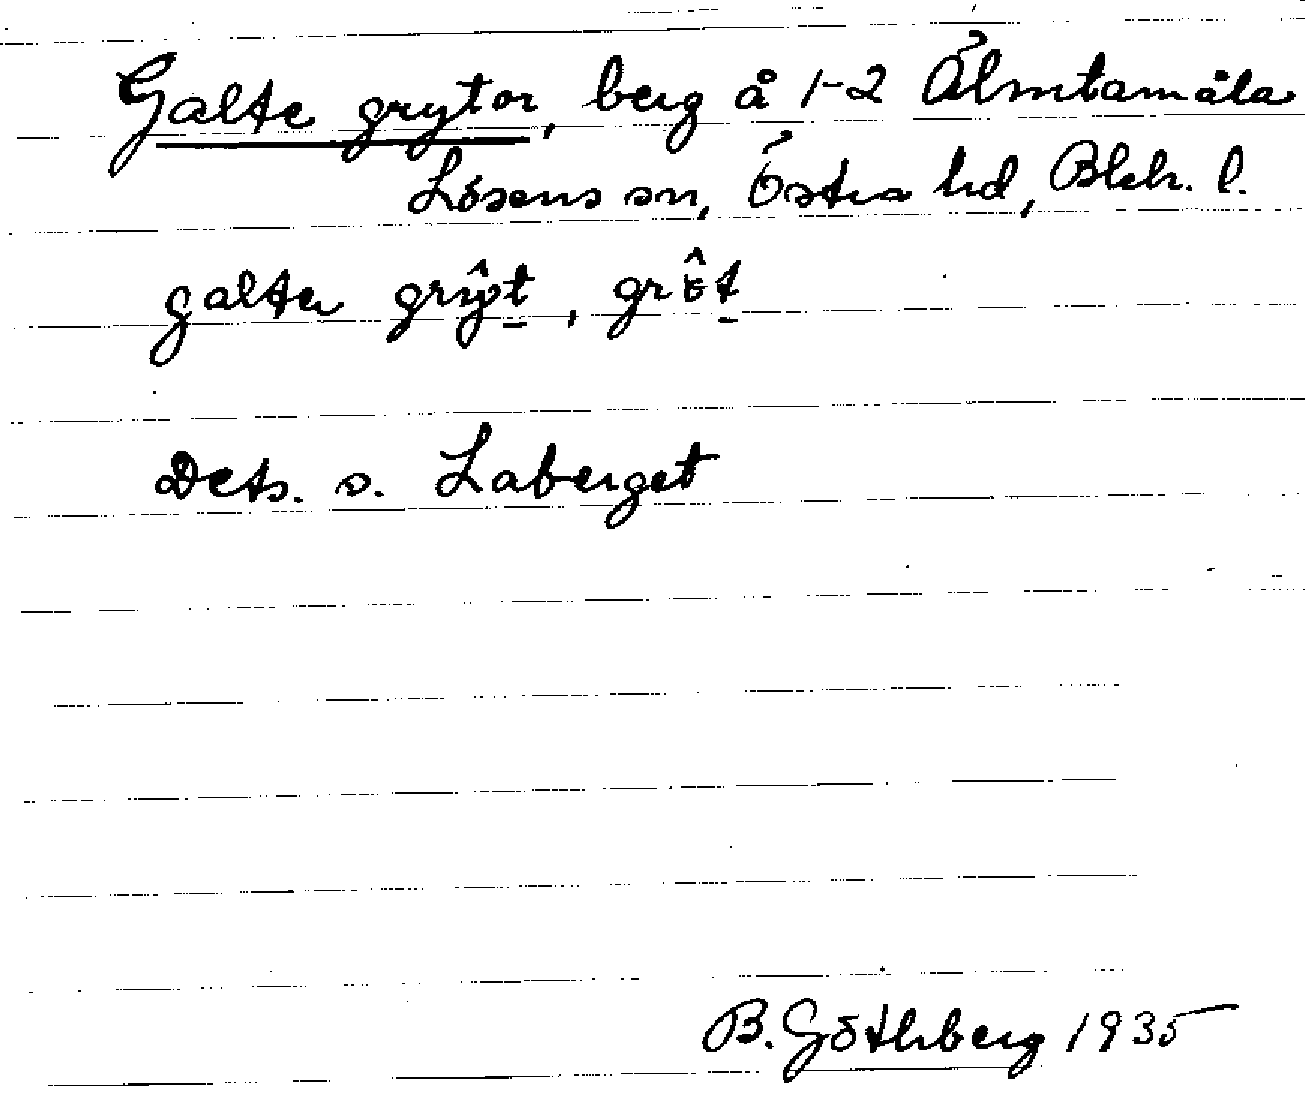 Galte grytor, berg å 1-2 Älmtamåla
Lösens sn, Östra hd, Blek. l.
galta grŷt, grô̈t
Dets. s. Laberget
B. Göthberg 1935